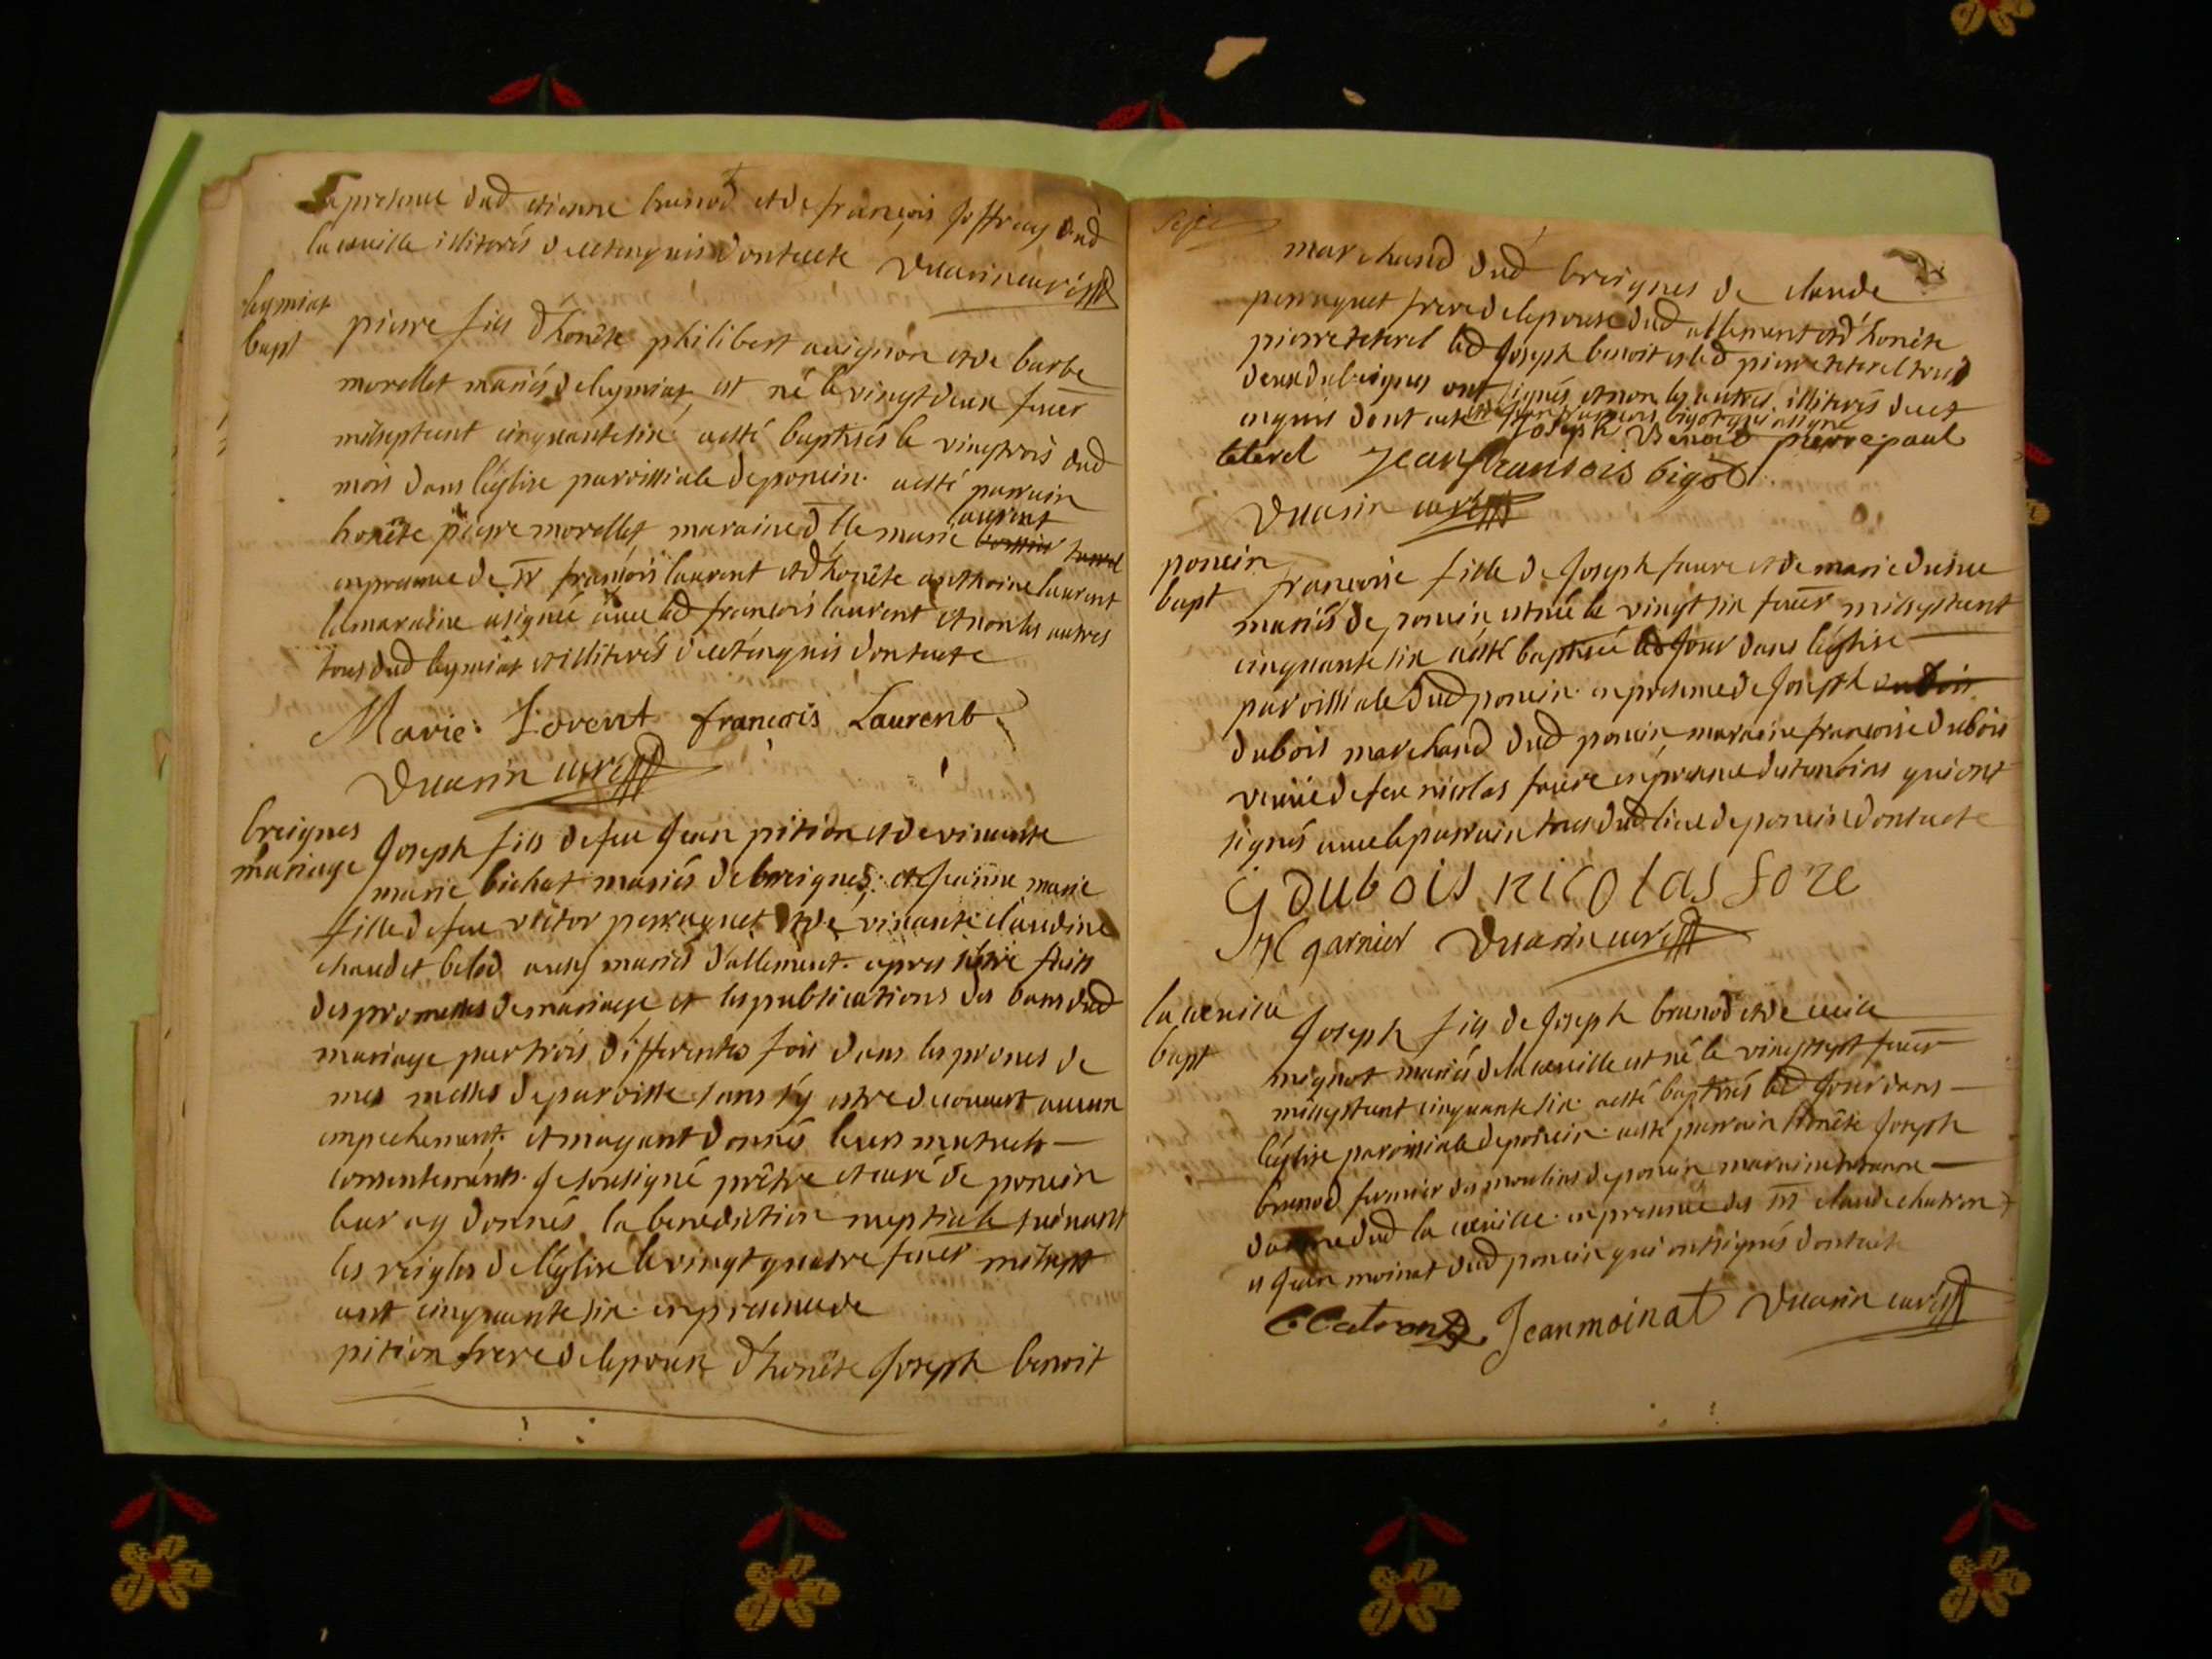 la presence dud etienne brunod et de françois Joffray dud
la cueille illiterés de ce enquis dont acte Ducarin curé
leymiat
bapt
pierre fils d'honête philibert auignon et de barbe
morellet mariés de leymiat, est né le vingt deux feuer
milseptcent cinquante six. a esté baptisés le vingtrois dud
mois dans l'église parroissiale de poncin. a esté parrain
honête pierre morellet maraine dlle marie laurent
en presence de sr françois laurent et d'honête anthoine laurent
la maraine a signée auec led françois laurent et non les autres
tous dud leymiat et illiterés de ce enquis dont acte
Marie Lorent francois Laurent
Ducarin curé
breignes
mariage
Joseph fils de feu Jean pition et de viuante
marie bichat mariés de breignes; et Jeanne marie
fille de feu victor perraquet et de viuante claudine
chaudet belod aussy mariés d'allement. apres s'etre faits
des promesses de mariage et les publications des bans dud
mariage par trois differentes fois dans les prones de
mes messes de parroisse sans s'y estre decouuert aucun
empechement, et m'ayant donnés leurs mutuels
consentements. Je sousigné prêtre et curé de poncin
leur ay donnés la benediction nuptiale suiuant
les reigles de l'église le vingt quatre feuer milsept
cent cinquante six. en presence de
pition frere de lepoux d'honête Joseph benoit
marchand dud breignes de claude
perraquet frere de lepouse dud allement et d'honête
pierre teterel led Joseph benoit et led pierre teterel tous
deux de breignes ont signés et non les autres illiterés de ce
enquis dont acte et Jean francois bigot qui a signé
Joseph Benoid pierre paul
teterel Jean fransois bigot
Ducarin curé
poncin
bapt
francoise fille de Joseph faure et de marie
mariés de poncin est née le vingt six feuer milseptcent
cinquante six a esté baptisée led Jour dans l'église
parroissiale dud poncin. en presence de Joseph dubois
dubois marchand dud poncin maraine francoise dubois
veuue de feu nicolas faure en presence des temoins qui ont
signés auec le parrain tous dud lieu de poncin dont acte
G DUBOIS NICOLAS FORE
garnier Ducarin curé
la cueille
bapt
Joseph fils de Joseph brunod et de
mignot mariés de la cueille est né le vingtsept feuer
milseptcent cinquante six. a esté baptisés led Jour dans
l'église paroissiale de poncin. a esté parrain honête Joseph
brunod fermier des moulins de poncin maraine
dud la cueille. en presence des srs claude chatron
et Jean moinat dud poncin qui ont signés dont acte
C Catron Jean moinat Ducarin curé